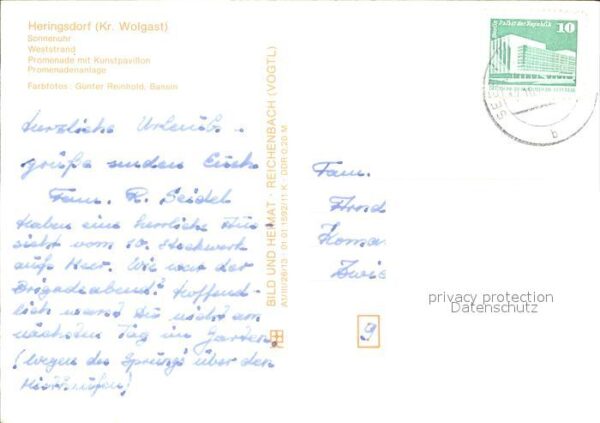 Heringsdorf (Kr. Wolgast)
Sonnenuhr
Weststrand
Promenade mit Kunstpavillon
Promenadenanlage
Farbfotos: Günter Reinhold, Bansin
Berlin, Palast der Republik
10
herzliche Urlaubs-
grüße senden Euch
Fam. R. Seidel
Haben eine herrliche Aus
sicht vom 10. Stockwerk
aufs Meer. Wie war der
Brigadeabend? Hoffend-
lich wart Du nicht am
nächsten Tag im Garten!
(wegen des Sprungs über den
BILD UND HEIMAT · REICHENBACH (VOGTL)
A1/III/26/13 · 01 01 1592/11 K · DDR 0,25 M
Fam.
Zwic
privacy protection
Datenschutz
9
b